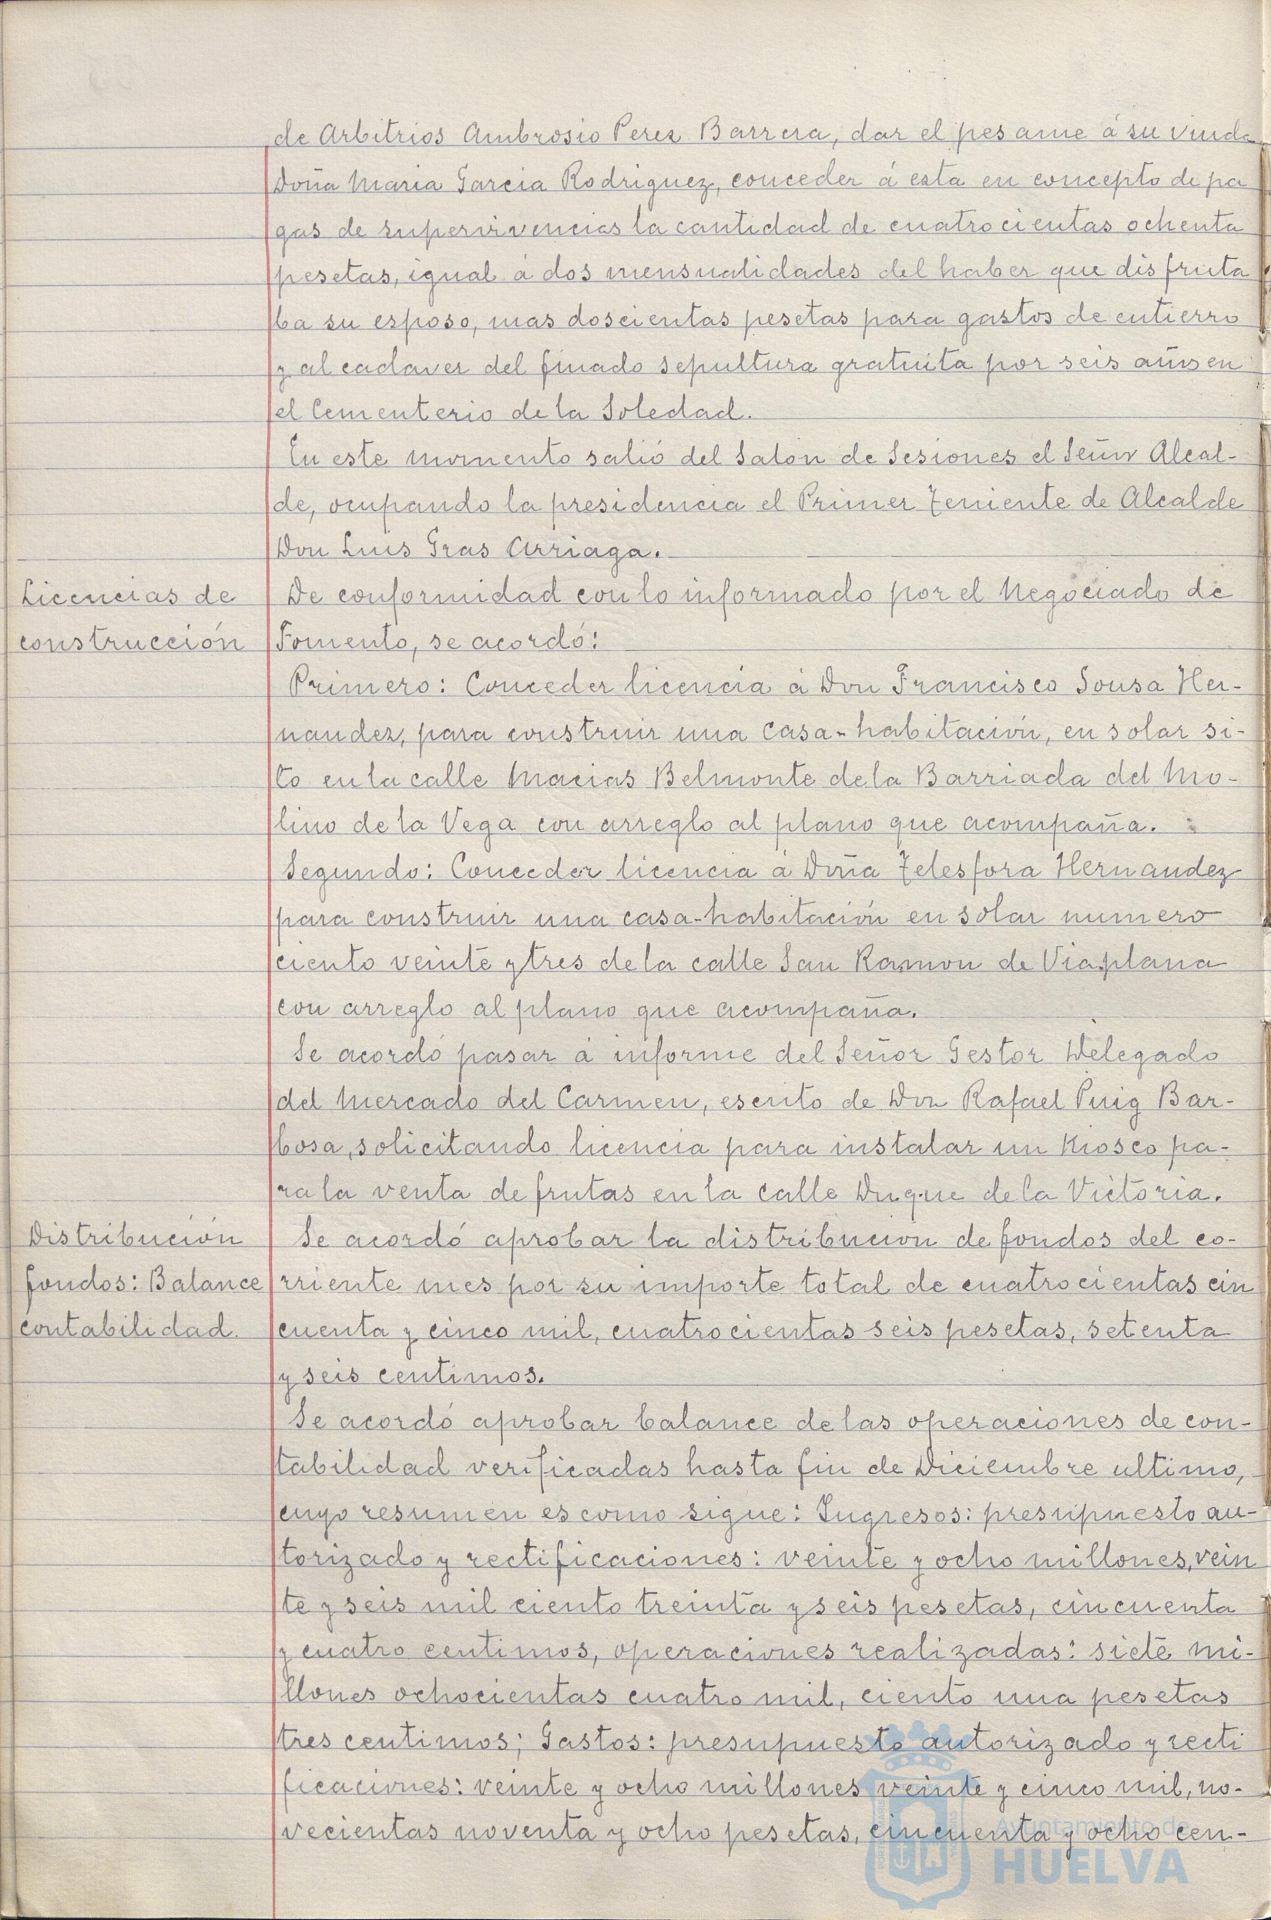 de Arbitrios Ambrosio Perez Barrera, dar el pesame á su viuda
Doña Maria Garcia Rodriguez, conceder á esta en concepto de pa
gas de supervivencias la cantidad de cuatrocientas ochenta
pesetas, igual á dos mensualidades del haber que disfruta
ba su esposo, mas doscientas pesetas para gastos de entierro
y al cadaver del finado sepultura gratuita por seis años en
el Cementerio de la Soledad.
En este momento salió del Salon de Sesiones el Señor Alcal-
de, ocupando la presidencia el Primer Teniente de Alcalde
Don Luis Gras Arriaga.
Licencias de
construcción
De conformidad con lo informado por el Negociado de
Fomento, se acordó:
Primero: Conceder licencia á Don Francisco Sousa Her-
nandez, para construir una casa-habitación, en solar si-
to en la calle Macias Belmonte de la Barriada del Mo-
lino de la Vega con arreglo al plano que acompaña.
Segundo: Conceder licencia á Doña Telesfora Hernandez
para construir una casa-habitación en solar numero
ciento veinte y tres de la calle San Ramon de Viaplana
con arreglo al plano que acompaña.
Se acordó pasar á informe del Señor Gestor Delegado
del Mercado del Carmen, escrito de Don Rafael Puig Bar-
bosa, solicitando licencia para instalar un Kiosco pa-
ra la venta de frutas en la calle Duque de la Victoria.
Distribución
fondos: Balance
contabilidad.
Se acordó aprobar la distribucion de fondos del co-
rriente mes por su importe total de cuatrocientas cin
cuenta y cinco mil, cuatrocientas seis pesetas, setenta
y seis centimos.
Se acordó aprobar balance de las operaciones de con-
tabilidad verificadas hasta fin de Diciembre ultimo,
cuyo resumen es como sigue: Ingresos: presupuesto au-
torizado y rectificaciones: veinte y ocho millones, vein
te y seis mil ciento treinta y seis pesetas, cincuenta
y cuatro centimos, operaciones realizadas: siete mi-
llones ochocientas cuatro mil, ciento una pesetas
tres centimos; Gastos: presupuesto autorizado y recti
ficaciones: veinte y ocho millones veinte y cinco mil, no-
vecientas noventa y ocho pesetas, cincuenta y ocho cen-
Ayuntamiento de
HUELVA